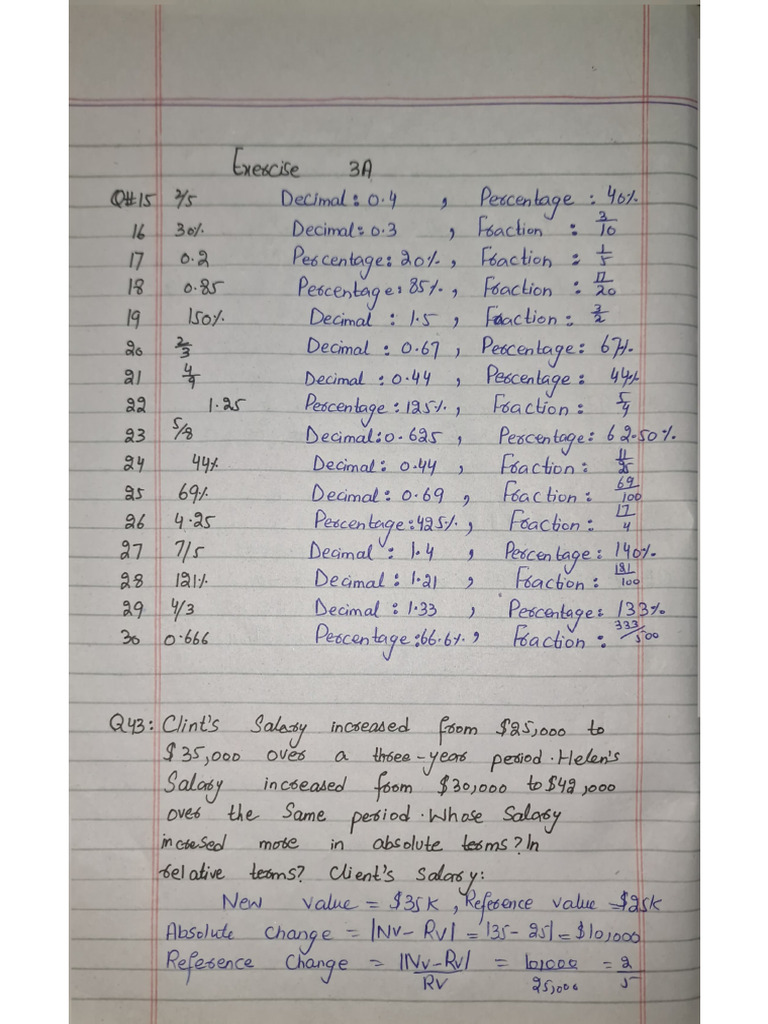 Exercise 3A
Q#15 2/5 Decimal: 0.4 , Percentage : 40%
16 30% Decimal: 0.3 , Fraction : 3/10
17 0.2 Percentage: 20% , Fraction : 1/5
18 0.85 Percentage: 85% , Fraction : 17/20
19 150% Decimal : 1.5 , Fraction : 3/2
20 2/3 Decimal : 0.67 , Percentage: 67%
21 4/9 Decimal : 0.44 , Percentage : 44%
22 1.25 Percentage : 125% , Fraction : 5/4
23 5/8 Decimal: 0.625 , Percentage: 62.50%
24 44% Decimal : 0.44 , Fraction : 11/25
25 69% Decimal : 0.69 , Fraction : 69/100
26 4.25 Percentage: 425% , Fraction : 17/4
27 7/5 Decimal : 1.4 , Percentage : 140%
28 121% Decimal : 1.21 , Fraction : 121/100
29 4/3 Decimal : 1.33 , Percentage: 133%
30 0.666 Percentage: 66.6% , Fraction : 333/500
Q43: Clint's Salary increased from $25,000 to
$35,000 over a three-year period. Helen's
Salary increased from $30,000 to $42,000
over the Same period. Whose Salary
incresed more in absolute terms? In
relative terms? Client's Salary:
New value = $35K , Reference value = $25K
Absolute change = |NV - RV| = |35 - 25| = $10,000
Reference Change = |NV-RV|/RV = 10,000/25,000 = 2/5